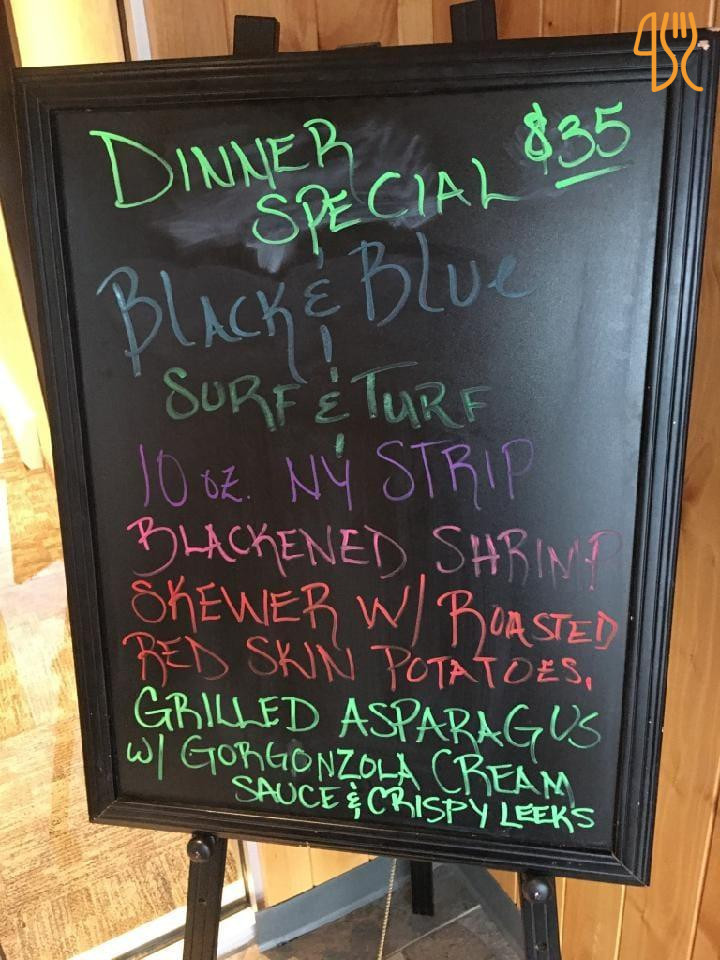 DINNER $35
SPECIAL
BLACK & BLUE
SURF & TURF
10 oz. NY STRIP
BLACKENED SHRIMP
SKEWER W/ ROASTED
RED SKIN POTATOES.
GRILLED ASPARAGUS
W/ GORGONZOLA CREAM
SAUCE & CRISPY LEEKS